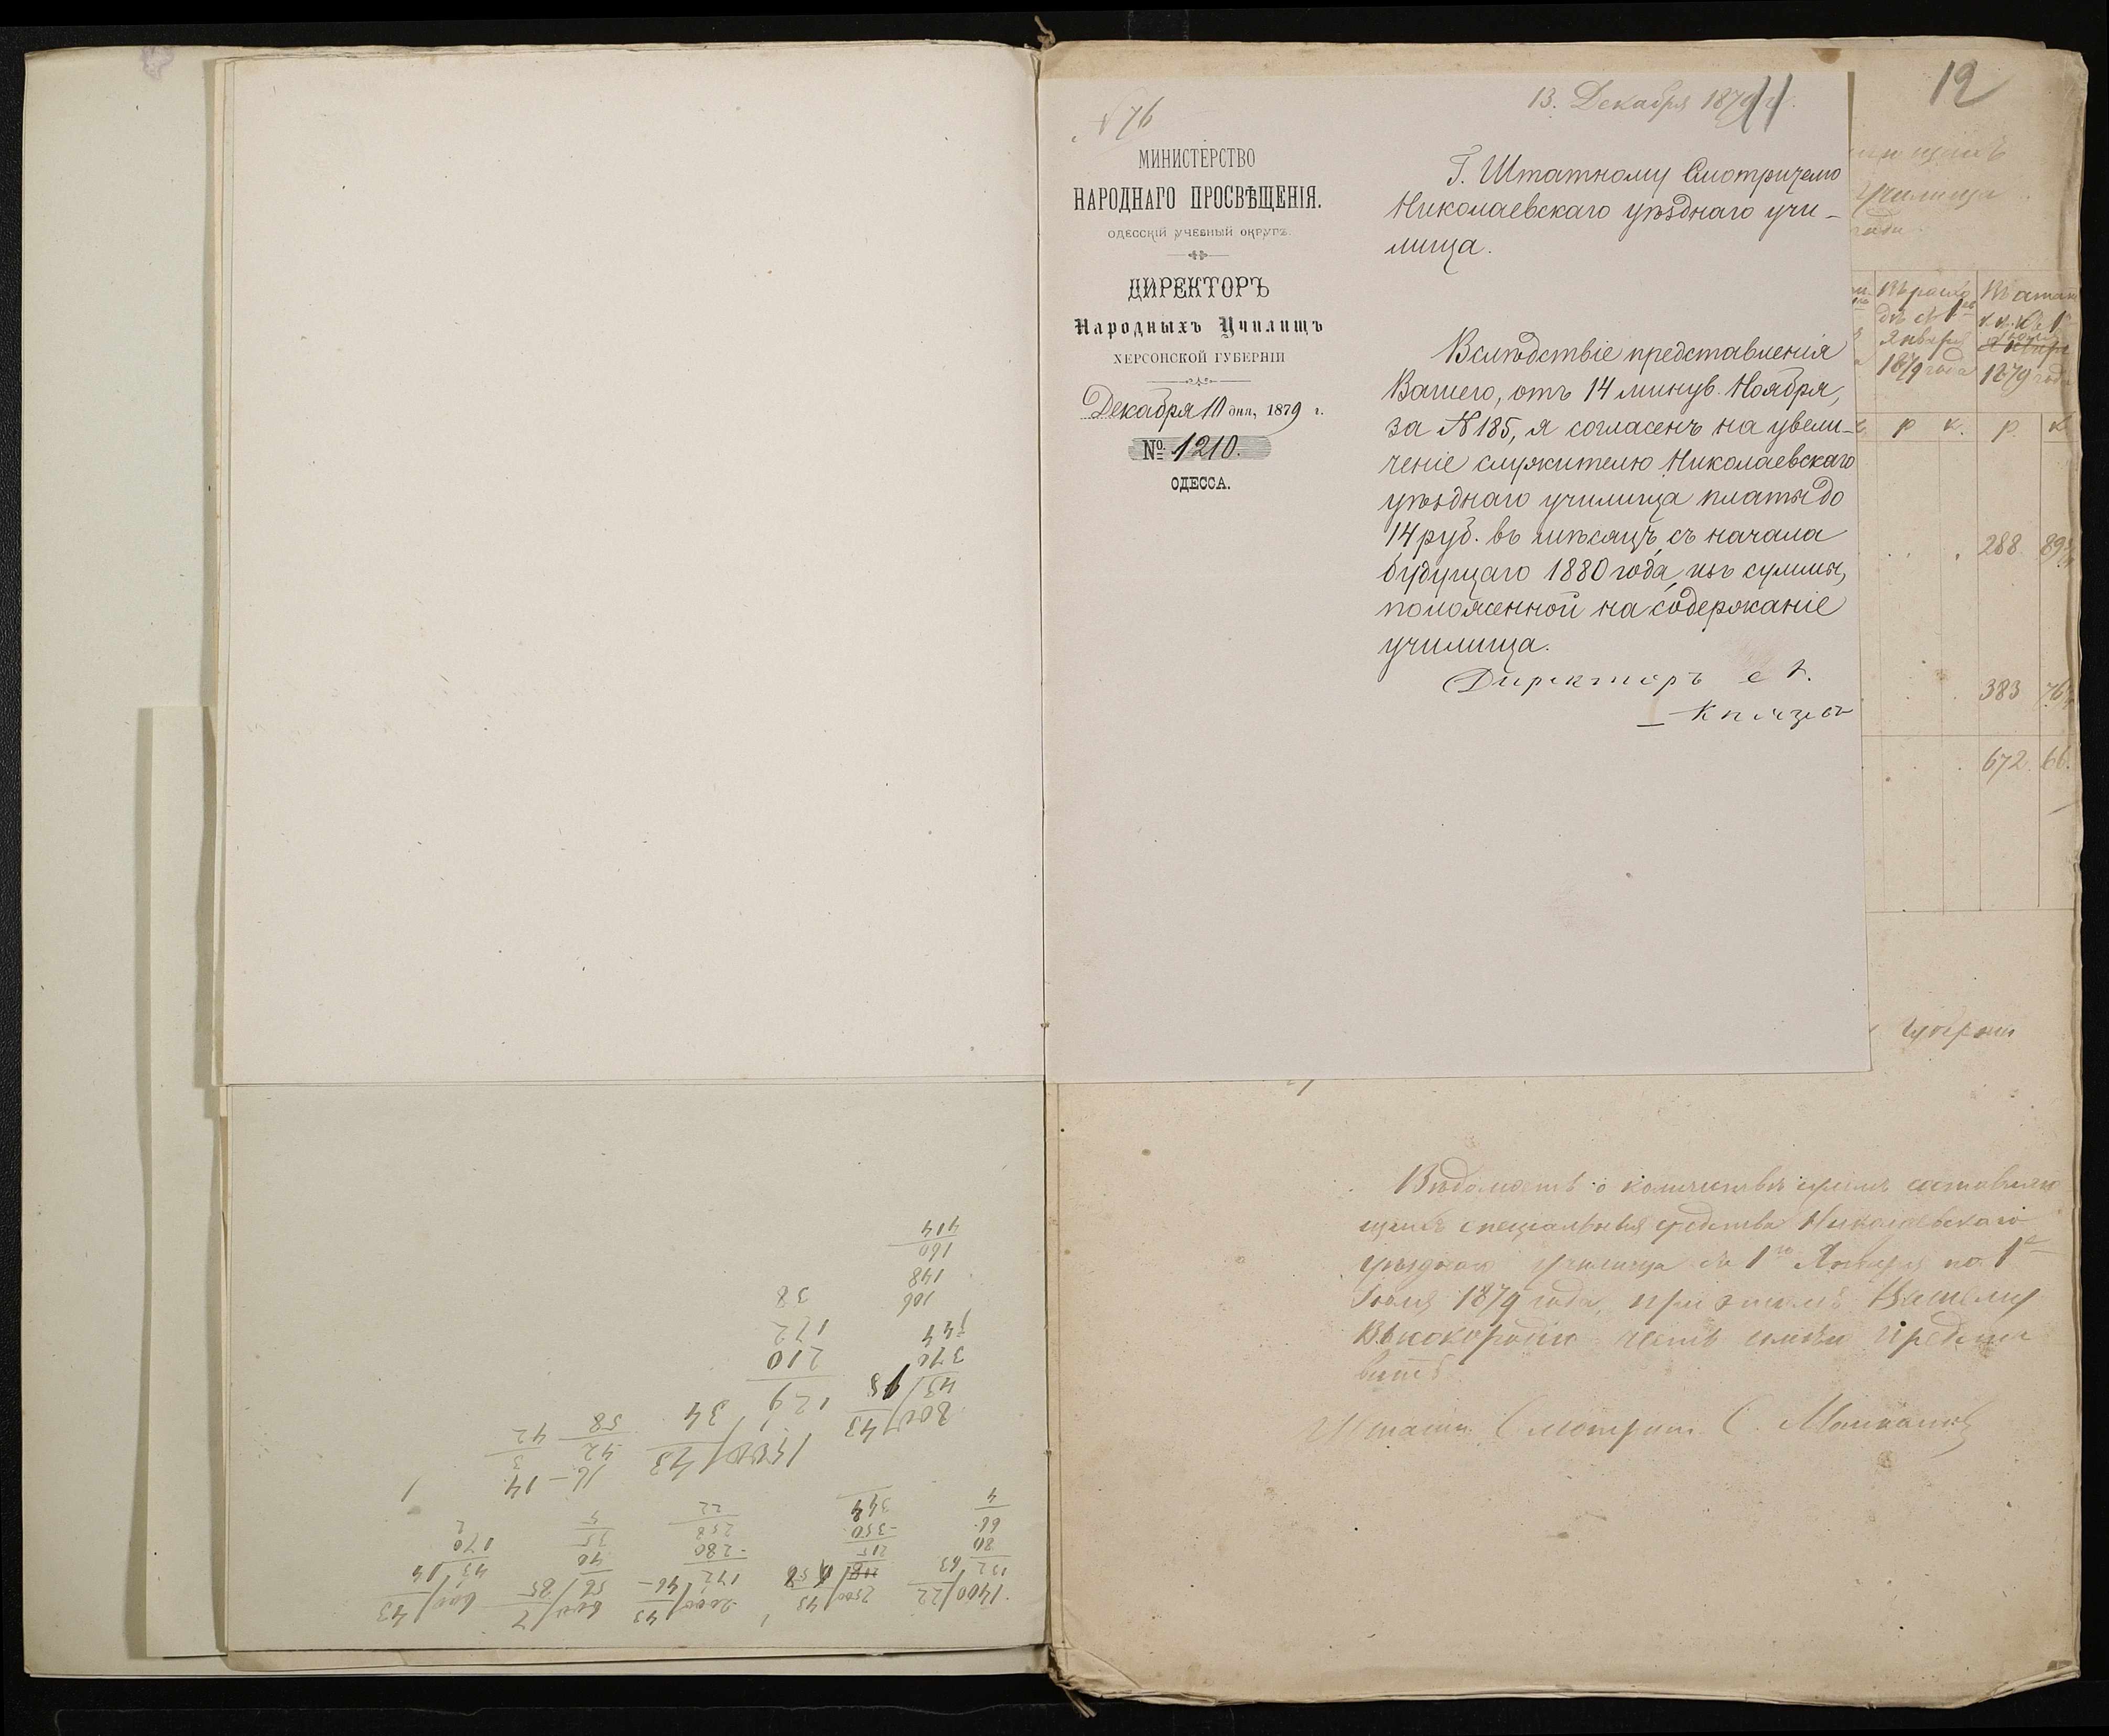 12
N 76
13. Декабря 1879 г.
МИНИСТЕРСТВО
НАРОДНАГО ПРОСВѢЩЕНІЯ.
ОДЕССКІЙ УЧЕБНЫЙ ОКРУГЪ.
ДИРЕКТОРЪ
Народныхъ Училищъ
ХЕРСОНСКОЙ ГУБЕРНІИ
Декабря 10 дня, 1879 г.
№ 1210.
ОДЕССА.
Г. Штатному Смотрителю
Николаевскаго уѣзднаго учи-
лища.
Вслѣдствіе представленія
Вашего, отъ 14 минув. Ноября,
за № 185, я согласенъ на увели-
ченіе служителю Николаевскаго
уѣзднаго училища платы до
14 руб. въ мѣсяцъ, съ начала
будущаго 1880 года, изъ суммы,
положенной на содержаніе
училища.
Директоръ
Князевъ
училища
года.
Въ расхо
дѣ съ 1го
Января
1879 года
1879 года
р. к. р. к.
288 89
383 76
672 66.
Губерніи
Вѣдомость о количествѣ суммъ составляю
щихъ спеціальныя средства Николаевскаго
уѣзднаго училища съ 1го Января по 1е
Іюля 1879 года, при этомъ Вашему
Высокородію честь имѣю предста
вить.
Штатн. Смотрит. С.
414
160
148
106
38
172
344
210
370
129
34
58
42
1400/22
2500/43
2000/43
600/7
600/43